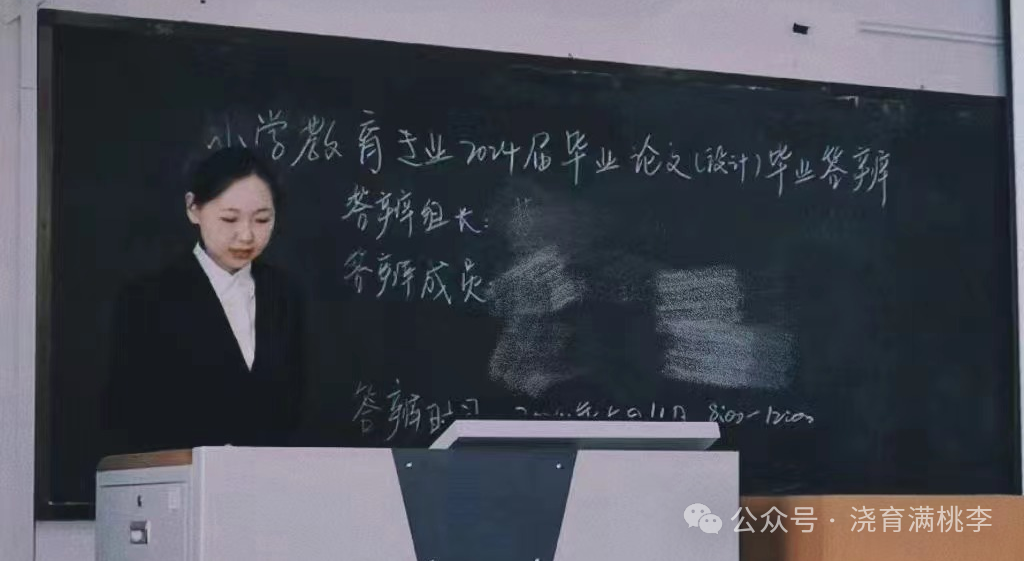 小学教育专业2024届毕业论文(设计)毕业答辩
答辩组长:
答辩成员
答辩时间 8:00-12:00
公众号·浇育满桃李